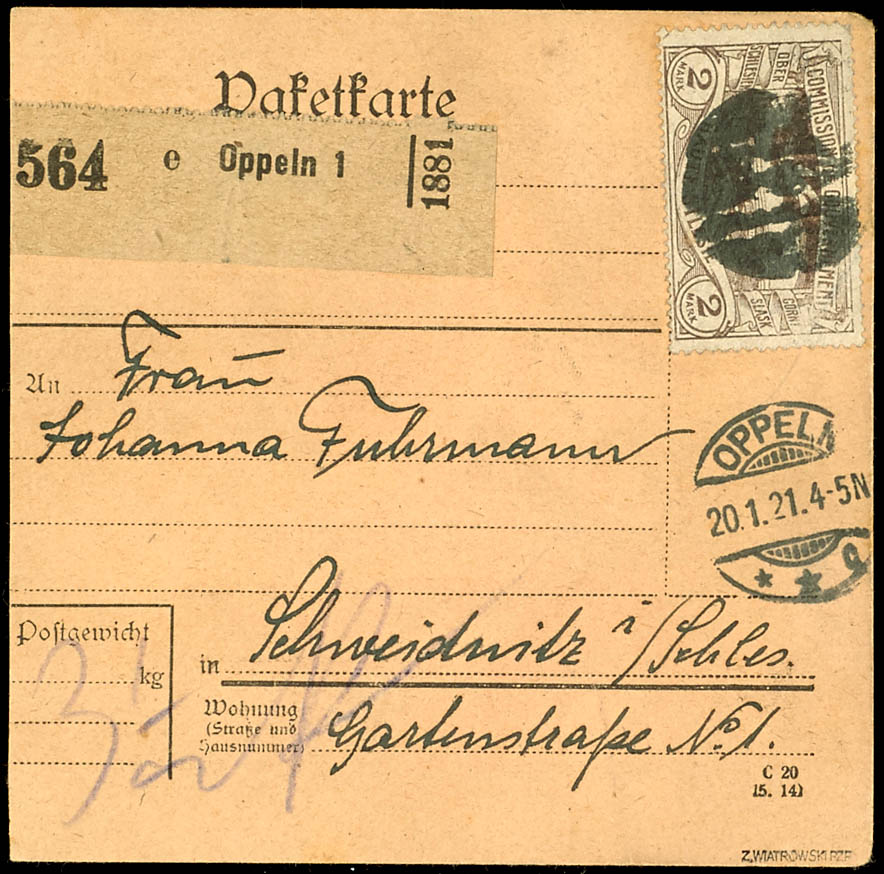 Paketkarte
564 e Oppeln 1 1881
COMMISSION DE GOUVERNEMENT
OBER
SCHLESIEN
2
MARK
GORN
SLASK
2
MARK
An Frau
Johanna Fuhrmann
OPPELN
20.1.21.4-5N
Postgewicht
kg
in Schweidnitz i/Schles.
Wohnung
(Straße und
Hausnummer)
Gartenstraße No 1.
C 20
(5. 14)
Z.WIATROWSKI BZP